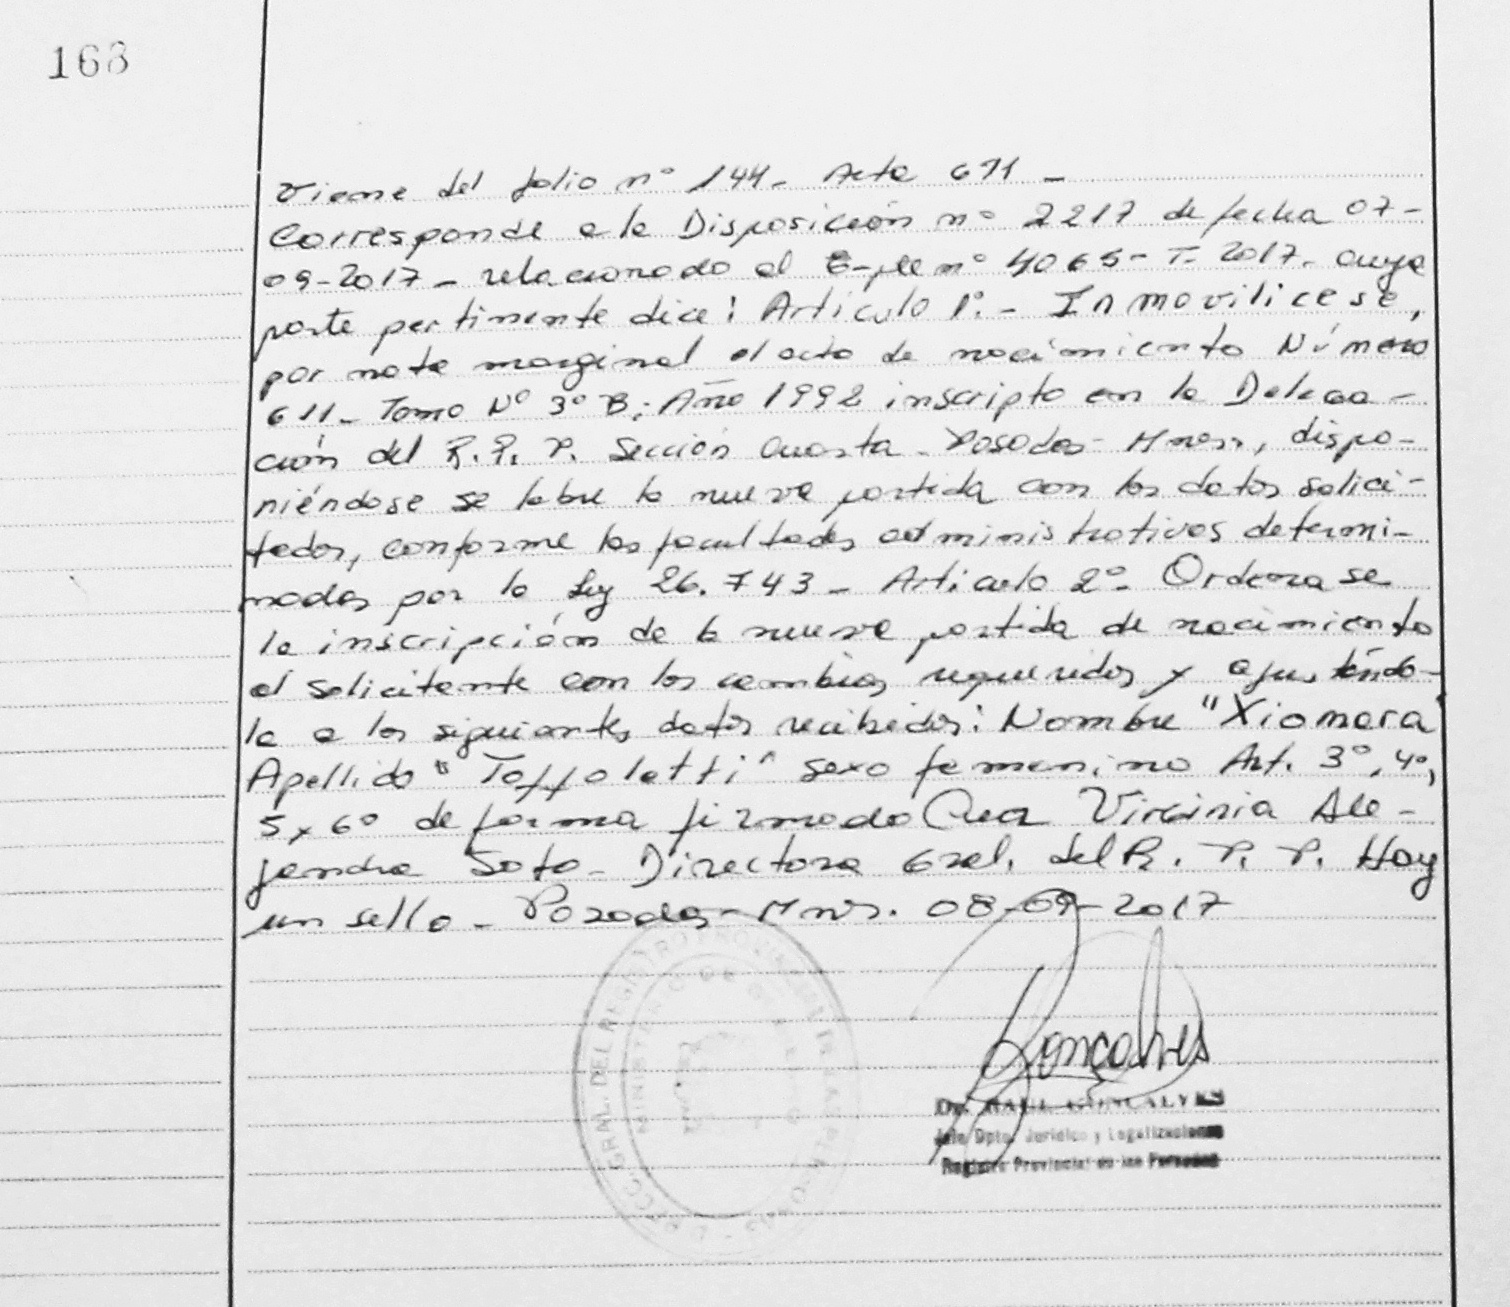 168
Viene del folio nº 144- Acta 611 -
Corresponde a la Disposición nº 2217 de fecha 07-
09-2017- relacionado al Expte nº 4065- T- 2017- cuya
parte pertinente dice: Artículo 1º.- Inmovilicese,
por nota marginal el acta de nacimiento Número
611- Tomo Nº 3º B; Año 1992 inscripto en la Delega-
ción del R. P. P. Sección Cuarta- Posadas- Mnes., dispo-
niéndose se labre la nueva partida con los datos solici-
tados, conforme las facultades administrativas determi-
nadas por la Ley 26.743- Articulo 2º- Ordenase
la inscripción de la nueva partida de nacimiento
al solicitante con los cambios requeridos y ajustándo-
la a los siguientes datos recibidos: Nombre "Xiomara"
Apellido "Toffoletti" sexo femenino Art. 3º, 4º,
5 y 6º de forma firmado Cra Virginia Ale-
jandra Soto- Directora Gral. del R. P. P. Hay
un sello- Posadas- Mnes. 08-09-2017
DECC. GRAL. DEL REGISTRO PROVINCIAL DE LAS PERSONAS
MINISTERIO DE GOBIERNO
Goncalves
GONCALVES
Jefe Dpto. Jurídico y Legalizaciones
Registro Provincial de las Personas